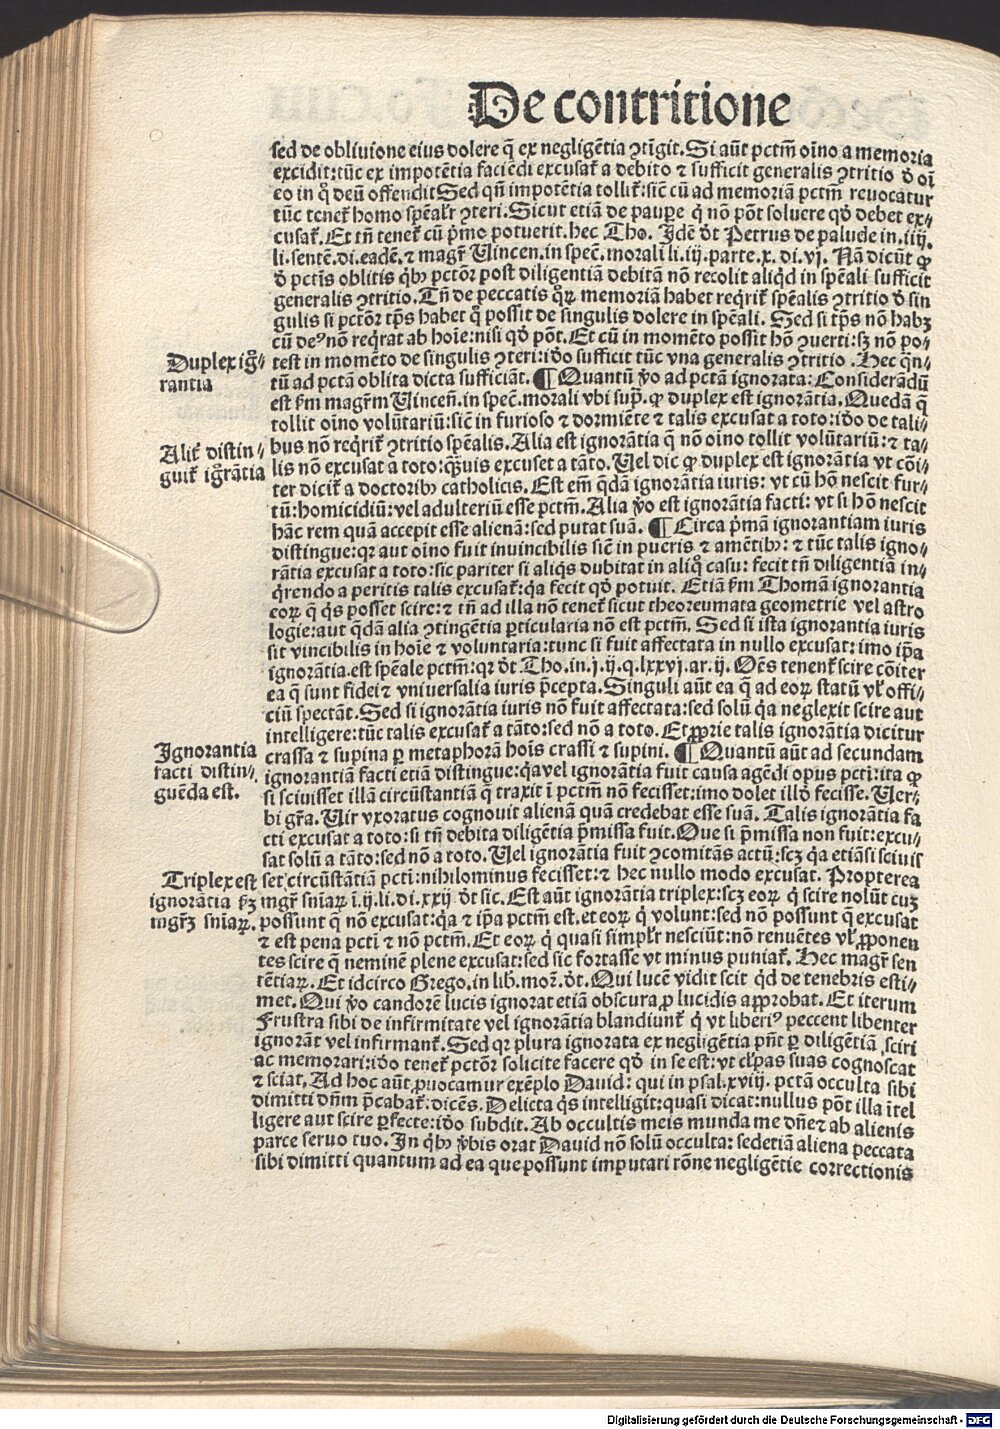 De contritione
sed de obliuione eius dolere q̄ ex negligētia ꝯtīgit. Si aūt pctm̄ oīno a memoria
excidit: tūc ex impotētia faciēdi excusat᷑ a debito ⁊ sufficit generalis ꝯtritio d̄ oī
eo in qͦ deū offendit Sed qn̄ impotētia tollit᷑: sic̄ cū ad memoriā pctm̄ reuocatur
tūc tenet᷑ homo sp̄eal'r ꝯteri. Sicut etiā de paupe q̄ nō pōt soluere qd̄ debet ex⸗
cusat᷑. Et tn̄ tenet᷑ cū p̄mo potuerit. hec Tho. Idē d̄t Petrus de palude in .iiij.
li. sentē. di. eadē. ⁊ magr̄ Vincen. in specͣ. morali li. iij. parte. x. di. vj. Nā dicūt ꝙ
d̄ pctīs oblitis qͥbꝰ pctōr post diligentiā debitā nō recolit aliqͥd in sp̄eali sufficit
generalis ꝯtritio. Tn̄ de peccatis qͦꝝ memoriā habet reqͥrit᷑ sp̄ealis ꝯtritio d̄ sin
gulis si pctōr tp̄s habet qͦ possit de singulis dolere in sp̄eali. Sed si tp̄s nō habꝫ
cū deꝰ nō reqͥrat ab hoīe: nisi qd̄ pōt. Et cū in momēto possit hō ꝯuerti: sꝫ nō po⸗
test in momēto de singulis ꝯteri: iðo sufficit tūc vna generalis ꝯtritio. Hec qͣn⸗
tū ad pctā oblita dicta sufficiāt. ¶ Quantū v̄o ad pctā ignorata: Considerādū
est ẜm magr̄m Vincen̄. in specͣ. morali vbi supͣ. ꝙ duplex est ignorātia. Quedā q̄
tollit oīno volūtariū: sic̄ in furioso ⁊ dormiēte ⁊ talis excusat a toto: iðo de tali⸗
bus nō reqͥrit᷑ ꝯtritio sp̄ealis. Alia est ignorātia q̄ nō oīno tollit volūtariū: ⁊ ta⸗
lis nō excusat a toto: qͣꝫuis excuset a tāto. Vel dic ꝙ duplex est ignorātia vt cōi⸗
ter dicit᷑ a doctoribꝰ catholicis. Est em̄ qͣdā ignorātia iuris: vt cū hō nescit fur⸗
tū: homicidiū: vel adulteriū esse pctm̄. Alia v̄o est ignorātia facti: vt si hō nescit
hāc rem quā accepit esse alienā: sed putat suā. ¶ Circa p̄mā ignorantiam iuris
distingue: qꝛ aut oīno fuit inuincibilis sic̄ in pueris ⁊ amētibꝰ: ⁊ tūc talis igno⸗
rātia excusat a toto: sic pariter si aliqͥs dubitat in aliqͦ casu: fecit tn̄ diligentiā in⸗
qͥrendo a peritis talis excusat᷑: qͥa fecit qd̄ potuit. Etiā ẜm Thomā ignorantia
eoꝝ q̄ qͥs posset scire: ⁊ tn̄ ad illa nō tenet᷑ sicut theoreumata geometrie vel astro
logie: aut qͣdā alia ꝯtingētia ꝑticularia nō est pctm̄. Sed si ista ignorantia iuris
sit vincibilis in hoīe ⁊ voluntaria: tunc si fuit affectata in nullo excusat: imo ip̄a
ignorātia. est sp̄eale pctm̄: qꝛ d̄t Tho. in. j. ij. q. lxxvj. ar. ij. Oēs tenent᷑ scire cōiter
ea q̄ sunt fidei ⁊ vniuersalia iuris p̄cepta. Singuli aūt ea q̄ ad eoꝝ statū vl' offi⸗
ciū spectāt. Sed si ignorātia iuris nō fuit affectata: sed solū qͥa neglexit scire aut
intelligere: tūc talis excusat᷑ a tāto: sed nō a toto. Et ꝓprie talis ignorātia dicitur
crassa ⁊ supina ꝑ metaphorā hoīs crassi ⁊ supini. ¶ Quantū aūt ad secundam
ignorantiā facti etiā distingue: qͥa vel ignorātia fuit causa agēdi opus pcti: ita ꝙ
si sciuisset illā circūstantiā q̄ traxit ī pctm̄ nō fecisset: imo dolet illd̄ fecisse. Uer⸗
bi gr̄a. Vir vxoratus cognouit alienā quā credebat esse suā. Talis ignorātia fa
cti excusat a toto: si tn̄ debita diligētia p̄missa fuit. Que si p̄missa non fuit: excu⸗
sat solū a tāto: sed nō a toto. Vel ignorātia fuit ꝯcomitās actū: scꝫ qͥa etiāsi sciuis
set circūstātiā pcti: nihilominus fecisset: ⁊ hec nullo modo excusat. Propterea
mgr̄ sniaꝝ ī. ij. li. di. xxij d̄t sic. Est aūt ignorātia triplex: scꝫ eoꝝ qͥ scire nolūt cuꝫ
possunt q̄ nō excusat: qͥa ⁊ ip̄a pctm̄ est. et eoꝝ qͥ volunt: sed nō possunt q̄ excusat
⁊ est pena pcti ⁊ nō pctm̄. Et eoꝝ qͥ quasi simpl'r nesciūt: nō renuētes vl' ꝓponen
tes scire q̄ neminē plene excusat: sed sic fortasse vt minus puniat᷑. Hec magr̄ sen
tētiaꝝ. Et idcirco Grego. in lib. moꝝ. d̄t. Qui lucē vidit scit qͥd de tenebris esti⸗
met. Qui v̄o candorē lucis ignorat etiā obscura ꝓ lucidis approbat. Et iterum
Frustra sibi de infirmitate vel ignorātia blandiunt᷑ qͥ vt liberiꝰ peccent libenter
ignorāt vel infirmant᷑. Sed qꝛ plura ignorata ex negligētia pn̄t ꝑ diligētiā sciri
ac memorari: iðo tenet᷑ pctōr solicite facere qd̄ in se est: vt cl'pas suas cognoscat
⁊ sciat. Ad hoc aūt ꝓuocamur exēplo Dauid: qui in psal. xviij. pctā occulta sibi
dimitti dn̄m p̄cabat᷑: dicēs. Delicta qͥs intelligit: quasi dicat: nullus pōt illa ītel
ligere aut scire ꝑfecte: iðo subdit. Ab occultis meis munda me dn̄e ⁊ ab alienis
parce seruo tuo. In qͥbꝰ v̄bis orat Dauid nō solū occulta: sed etiā aliena peccata
sibi dimitti quantum ad ea que possunt imputari rōne negligētie correctionis
Duplex ig̅⸗
rantia
Alit᷑ distin⸗
guit᷑ igͦrātia
Ignorantia
facti distin⸗
guēda est.
Triplex est
ignorātia ẜꝫ
mgr̄ꝫ sniaꝝ.
Digitalisierung gefördert durch die Deutsche Forschungsgemeinschaft - DFG